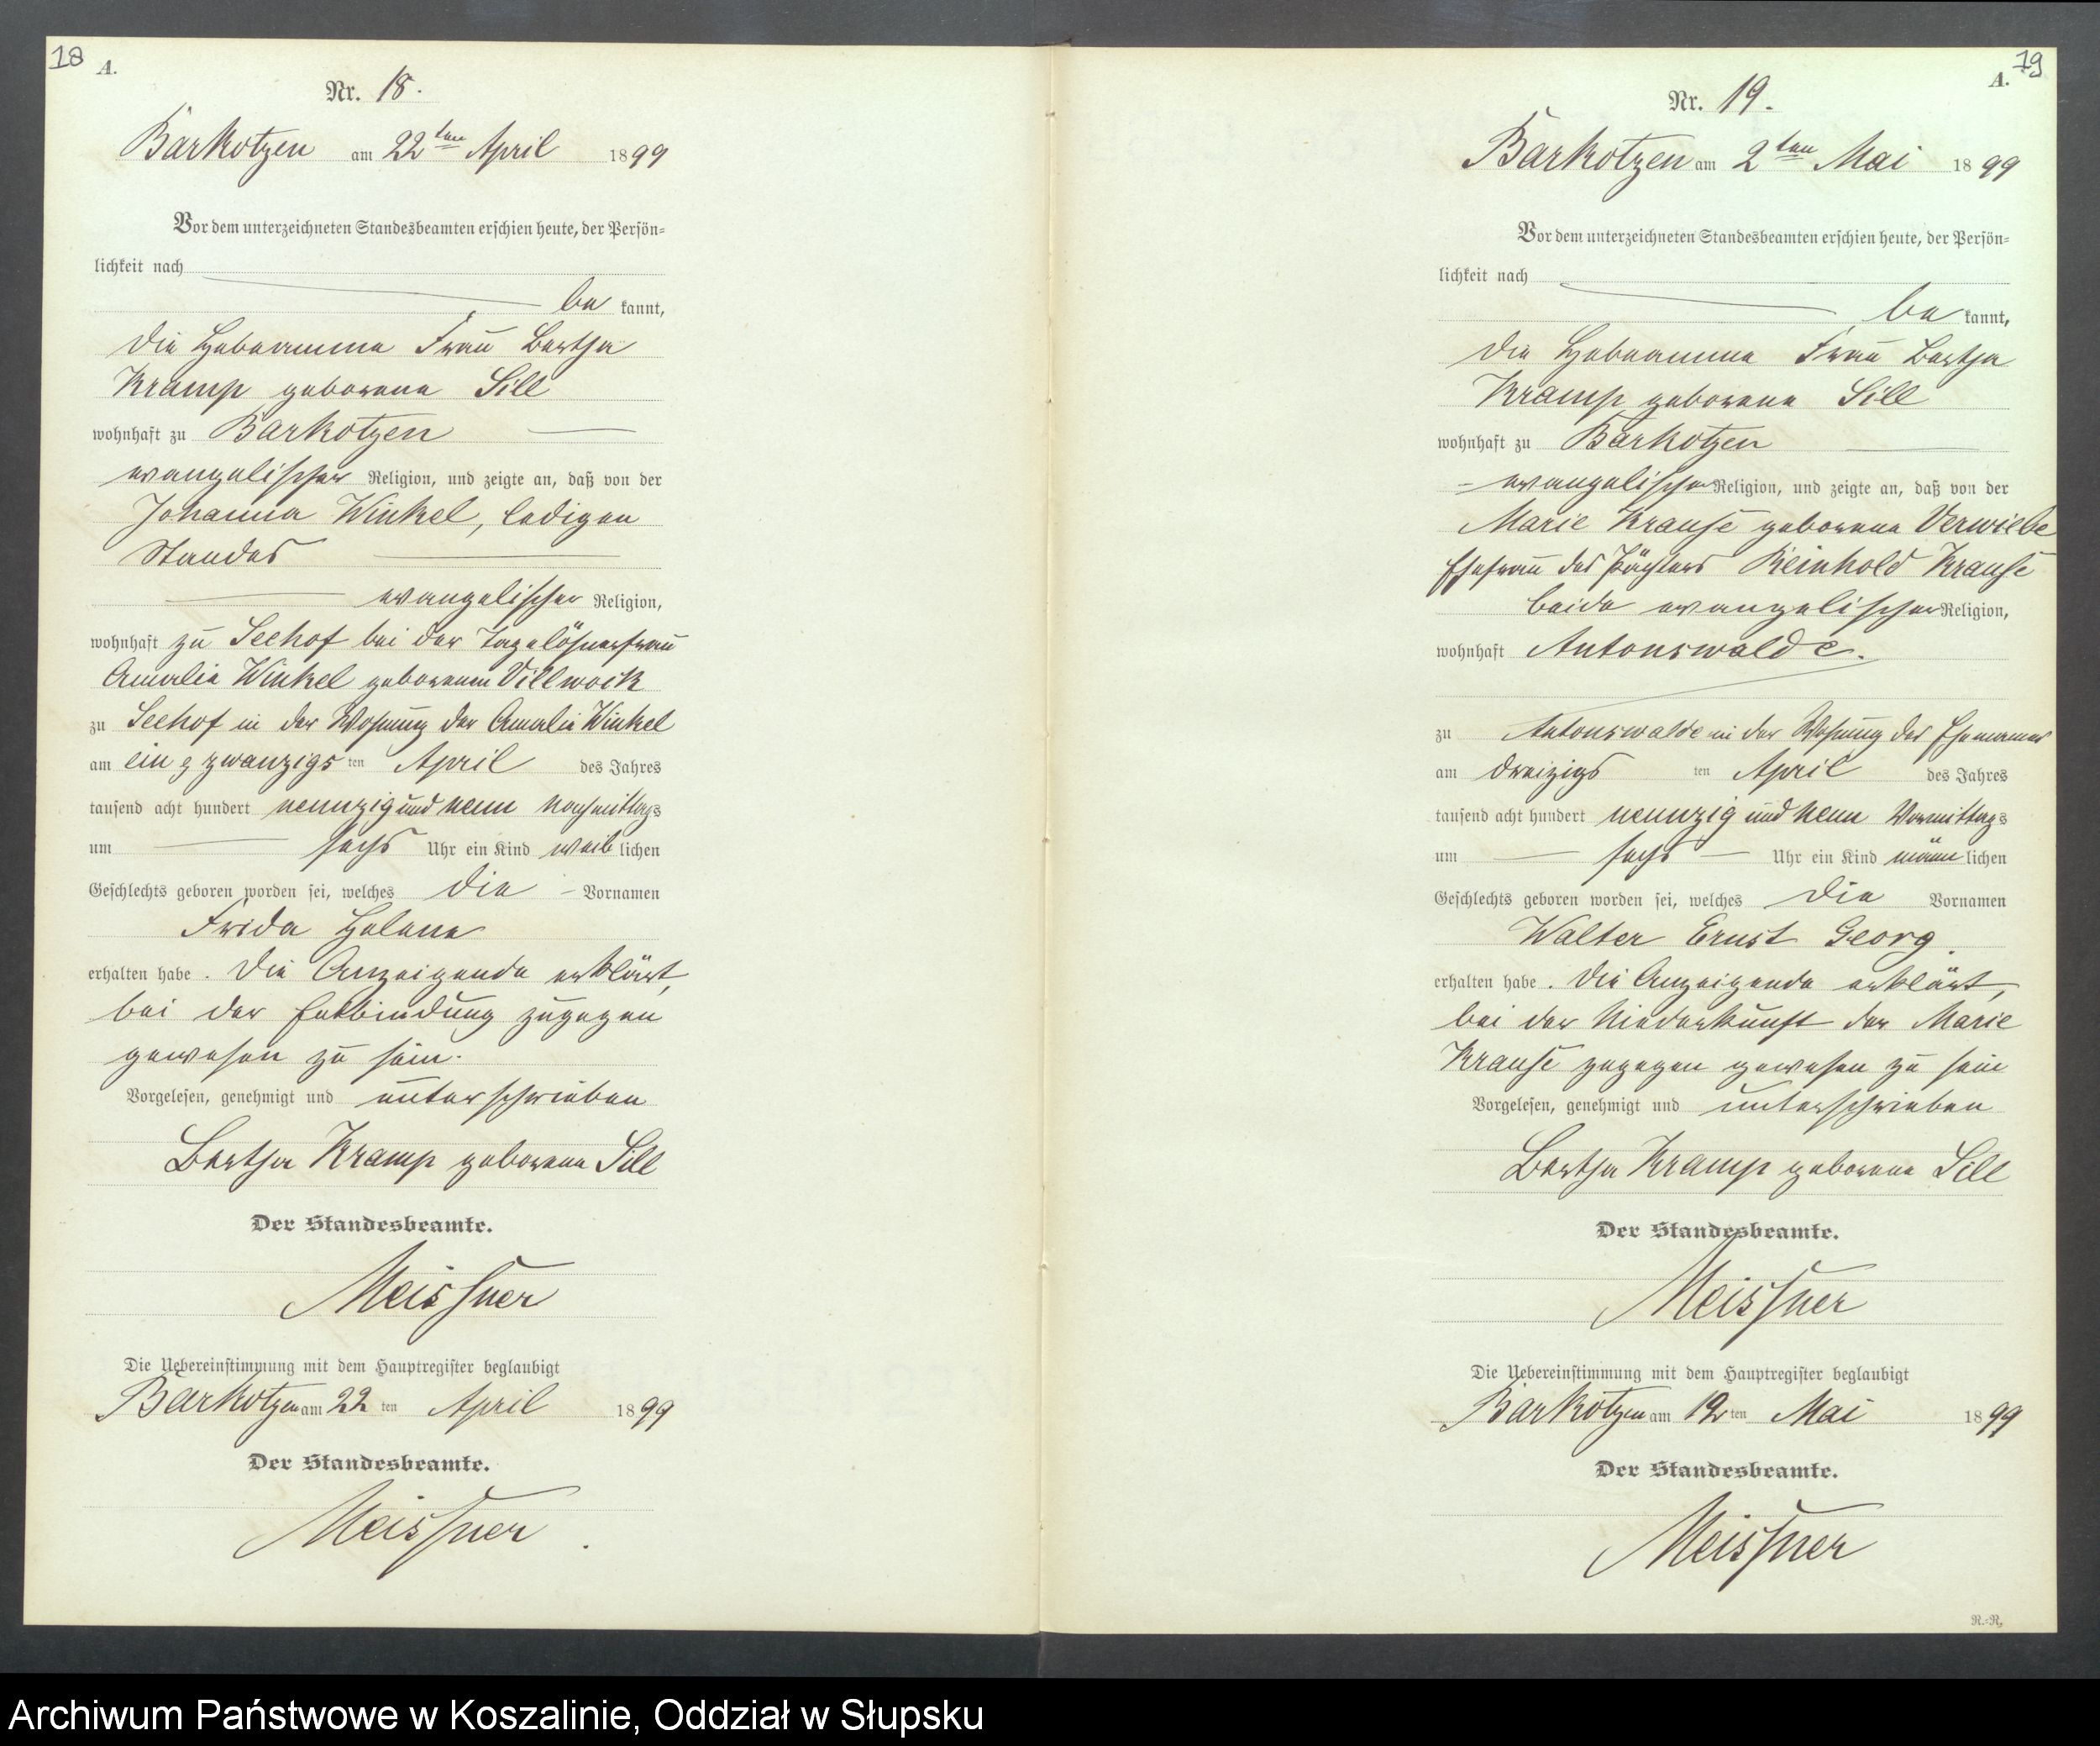 18
A.
Nr. 18.
Barkotzen am 22ten April 1899
Vor dem unterzeichneten Standesbeamten erschien heute, der Persön-
lichkeit nach
be kannt,
die Hebeamme Frau Bertha
Kramp geborene Sill
wohnhaft zu Barkotzen
evangelischer Religion, und zeigte an, daß von der
Johanna Winkel, ledigen
Standes
evangelischer Religion,
wohnhaft zu Seehof bei der Tagelöhnerfrau
Amalie Winkel geborenen Villwock
zu Seehof in der Wohnung der Amalie Winkel
am ein zwanzigs ten April des Jahres
tausend acht hundert neunzig und neun Nachmittags
um sechs Uhr ein Kind weib lichen
Geschlechts geboren worden sei, welches die Vornamen
Frida Helene
erhalten habe. Die Anzeigende erklärt,
bei der Entbindung zugegen
gewesen zu sein.
Vorgelesen, genehmigt und unterschrieben
Bertha Kramp geborene Sill
Der Standesbeamte.
Meissner
Die Uebereinstimmung mit dem Hauptregister beglaubigt
Barkotzen am 22 ten April 1899
Der Standesbeamte.
Meissner
19
A.
Nr. 19.
Barkotzen am 2ten Mai 1899
Vor dem unterzeichneten Standesbeamten erschien heute, der Persön-
lichkeit nach
be kannt,
die Hebeamme Frau Bertha
Kramp geborene Sill
wohnhaft zu Barkotzen
evangelischer Religion, und zeigte an, daß von der
Marie Krause geborene Verwiebe
Ehefrau des Pächters Reinhold Krause
beide evangelischer Religion,
wohnhaft Antonswalde.
zu Antonswalde in der Wohnung des Ehemannes
am dreizigs ten April des Jahres
tausend acht hundert neunzig und neun Vormittags
um sechs Uhr ein Kind männ lichen
Geschlechts geboren worden sei, welches die Vornamen
Walter Ernst Georg
erhalten habe. Die Anzeigende erklärt,
bei der Niederkunft der Marie
Krause zugegen gewesen zu sein
Vorgelesen, genehmigt und unterschrieben
Bertha Kramp geborene Sill
Der Standesbeamte.
Meissner
Die Uebereinstimmung mit dem Hauptregister beglaubigt
Barkotzen am ten Mai 1899
Der Standesbeamte.
Meissner
R.-R.
Archiwum Państwowe w Koszalinie, Oddział w Słupsku